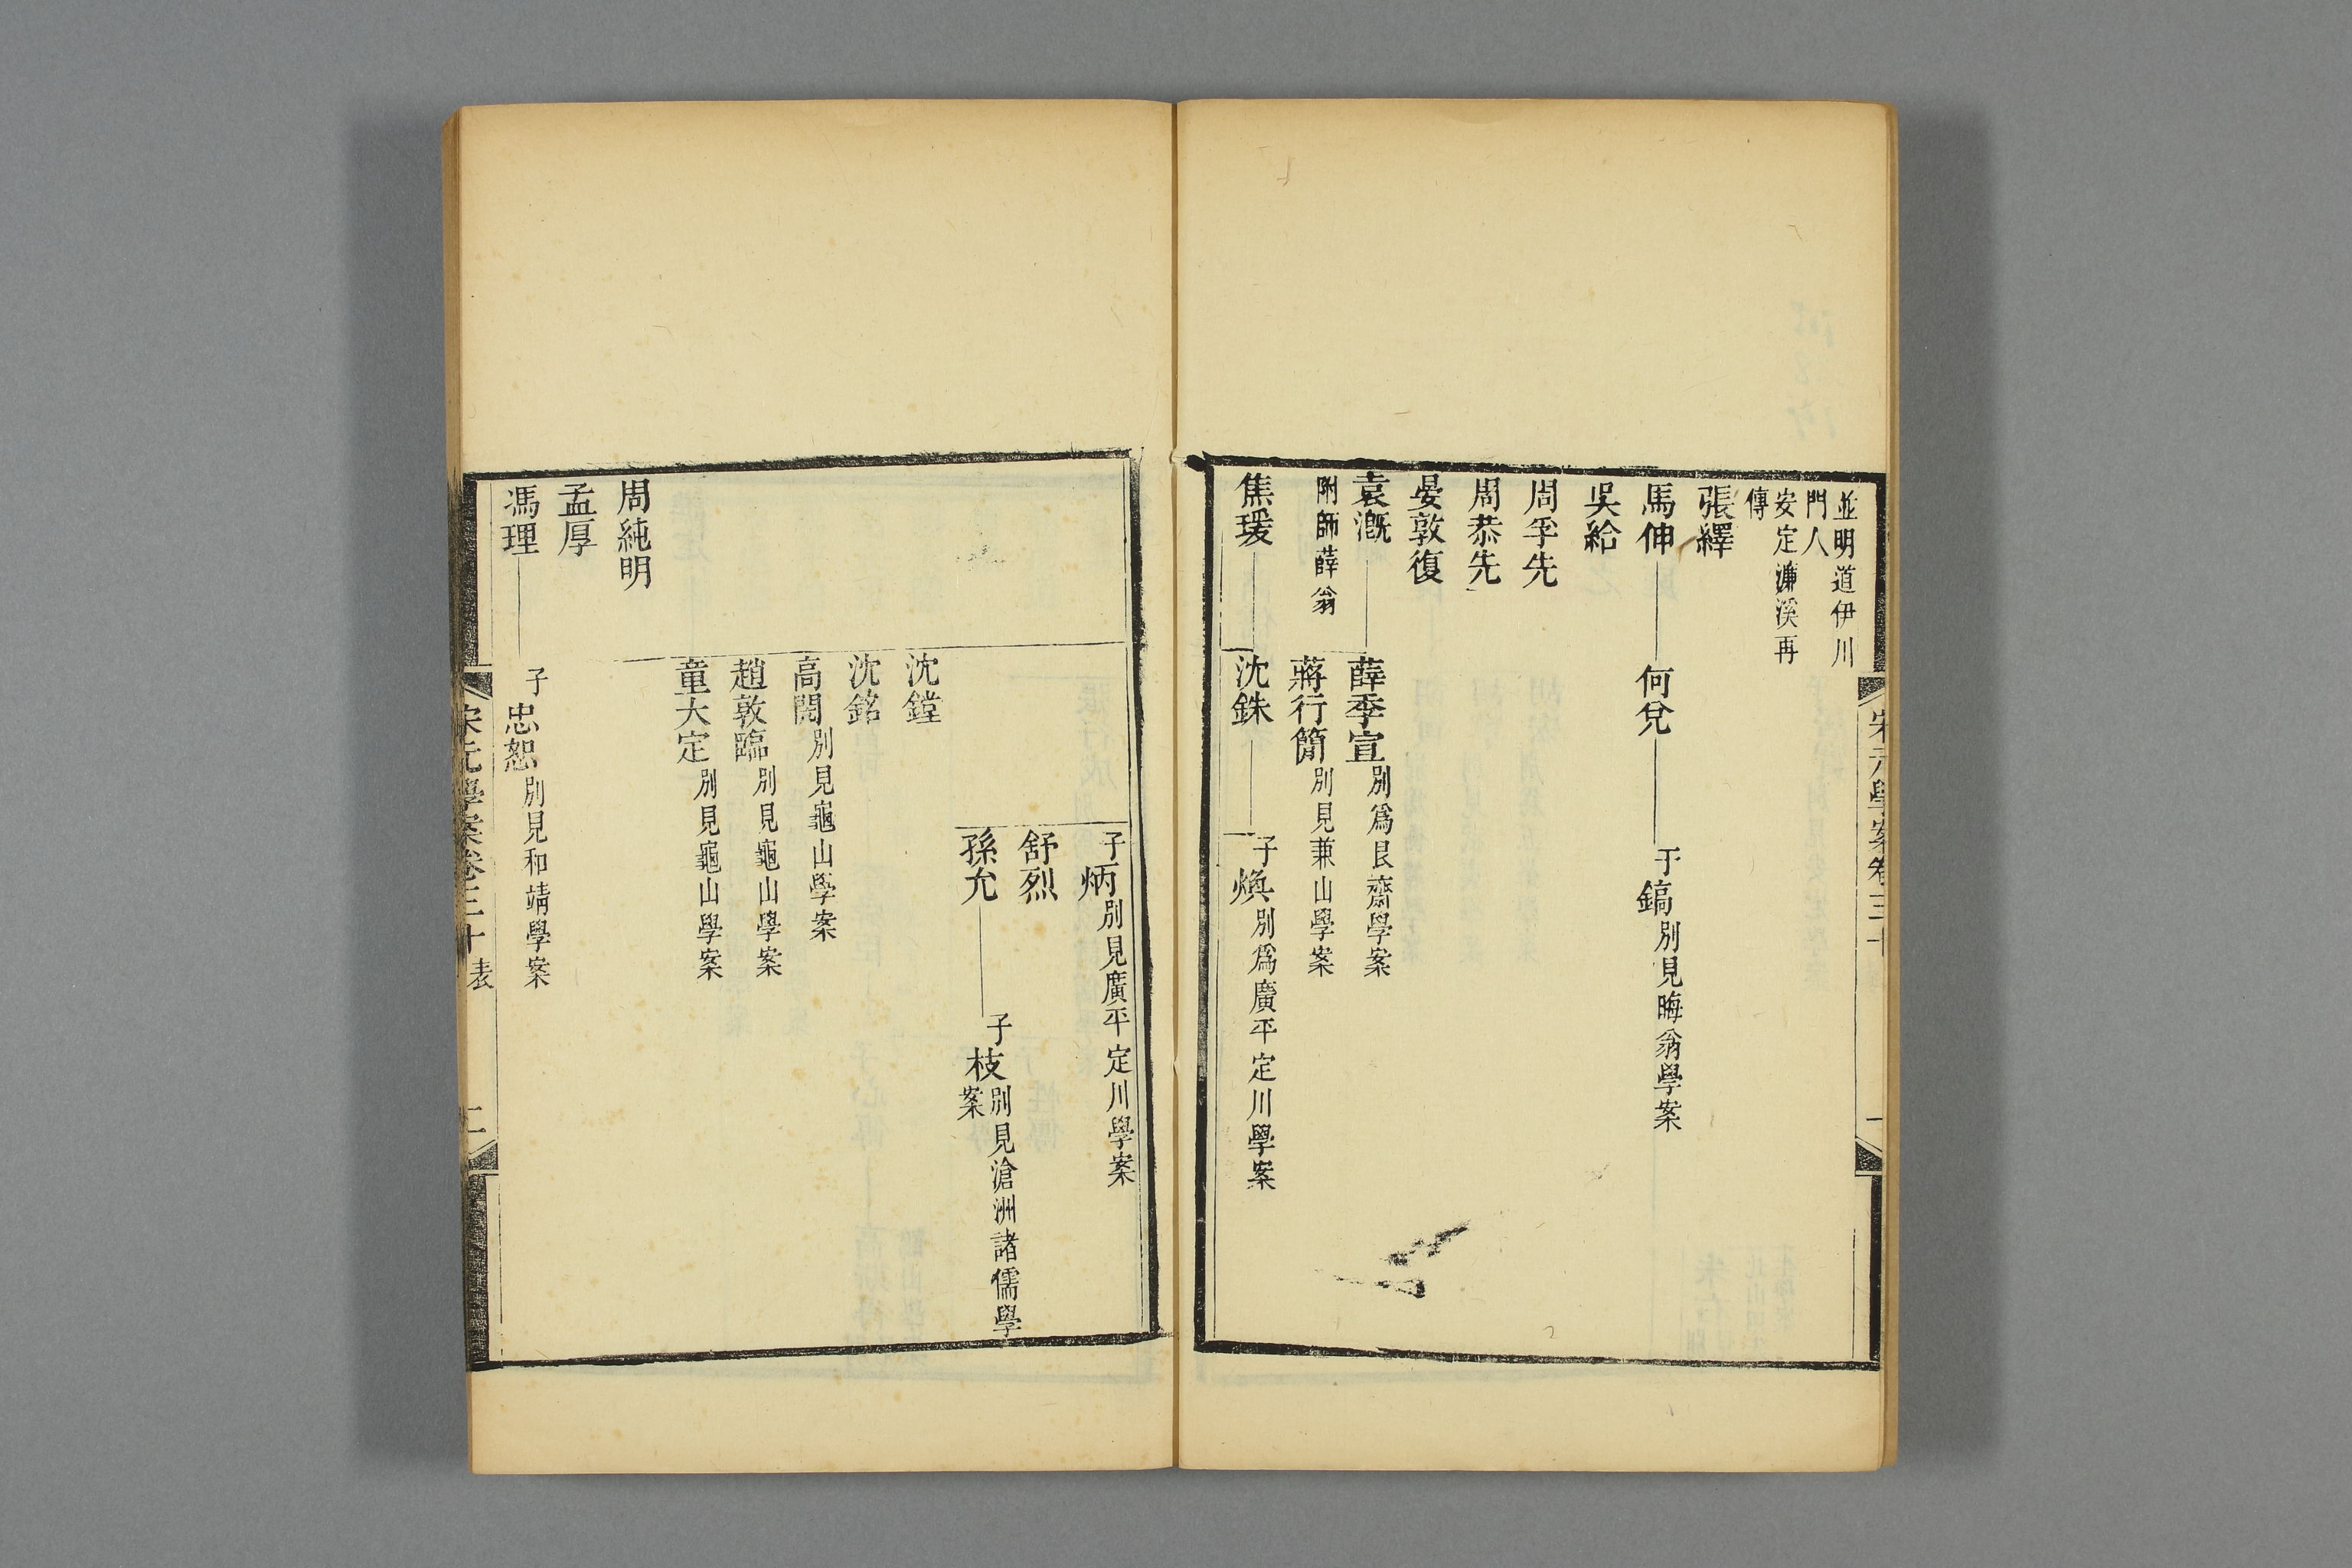 並明道伊川
門人
安定濂溪再
傳
張繹
馬伸 何兌 子鎬別見晦翁學案
吳給
周孚先
周恭先
晏敦復
袁溉 薛季宣別爲艮齋學案
附師薛翁 蔣行簡別見兼山學案
焦瑗 沈銖 子煥別爲廣平定川學案
子炳別見廣平定川學案
舒烈
孫允 子枝別見滄洲諸儒學
案
沈鏜
沈銘
高閌別見龜山學案
趙敦臨別見龜山學案
童大定別見龜山學案
周純明
孟厚
馮理 子忠恕別見和靖學案
宋元學案卷三十 表 二